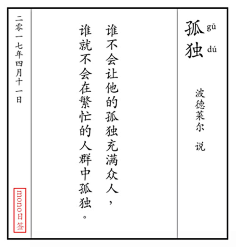 孤独
gū
dú
波德莱尔 说
谁不会让他的孤独充满众人，
谁就不会在繁忙的人群中孤独。
二零一七年四月十一日
mono日签